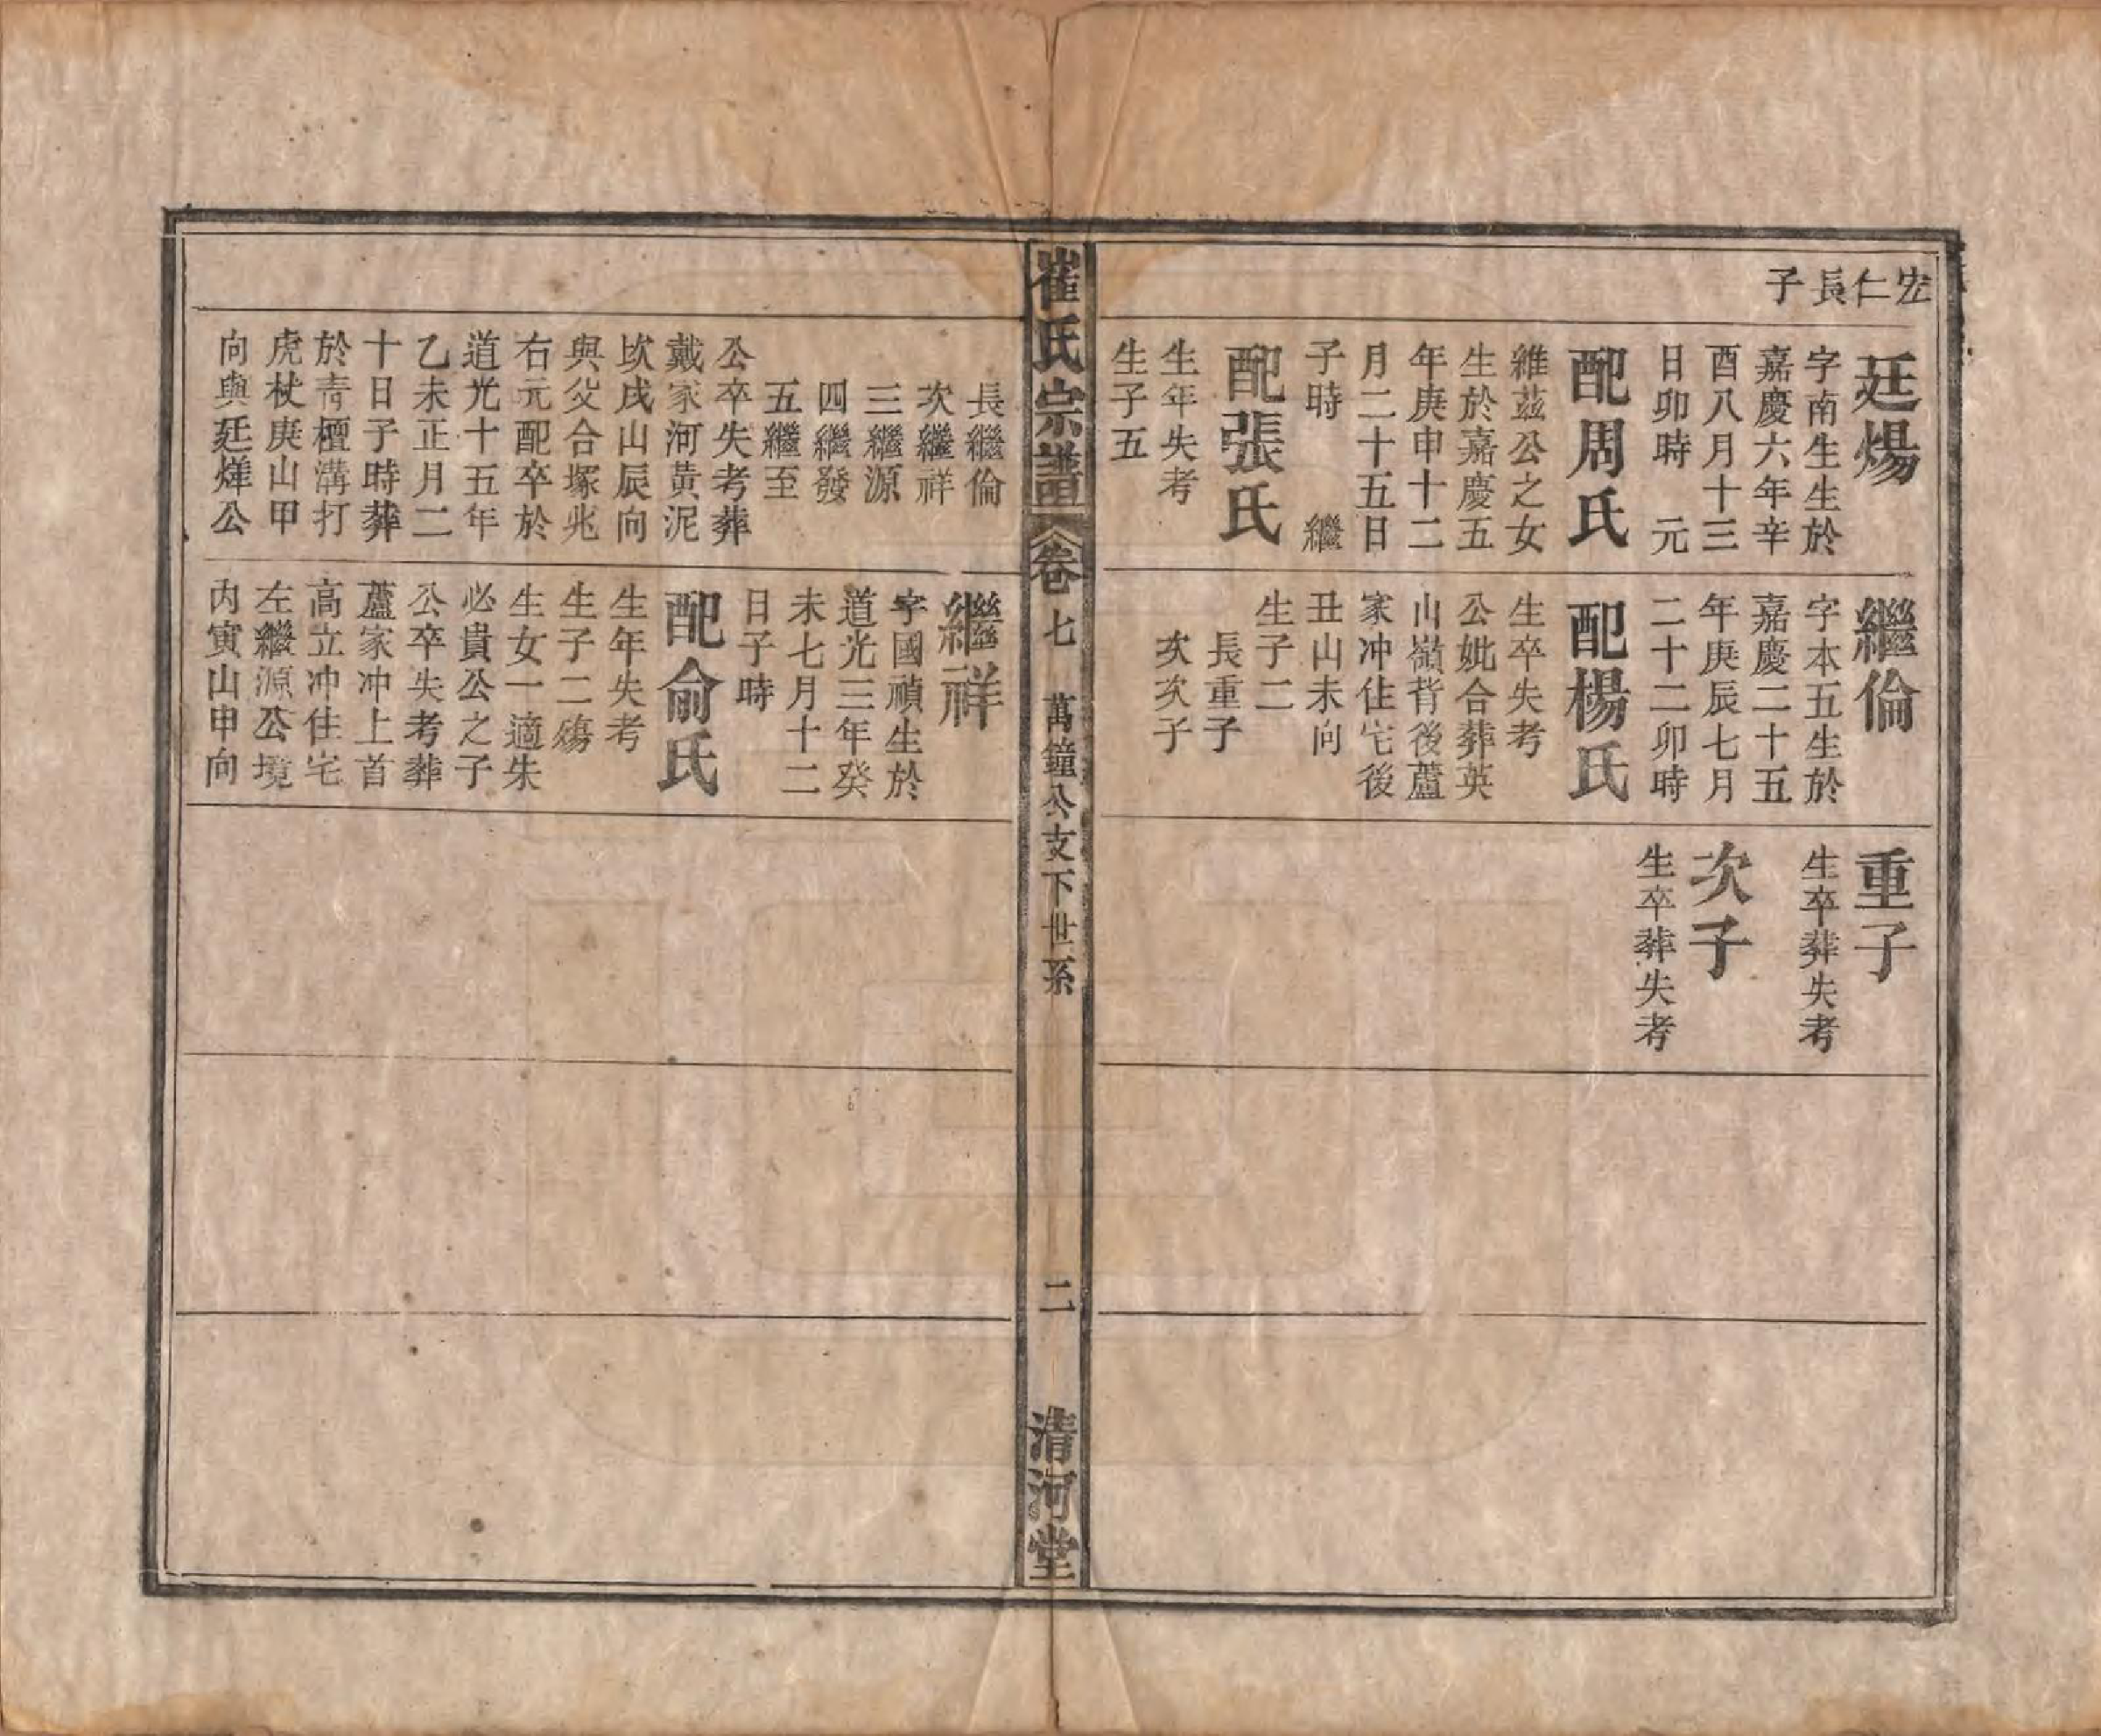 宏仁長子
廷煬
字南生生於
嘉慶六年辛
酉八月十三
日卯時　元
配周氏
維茲公之女
生於嘉慶五
年庚申十二
月二十五日
子時　　繼
配張氏
生年失考
生子五
繼倫
字本五生於
嘉慶二十五
年庚辰七月
二十二卯時
配楊氏
生卒失考
公妣合葬英
山嶺背後蘆
家冲住宅後
丑山未向
生子二
長重子
次次子
重子
生卒葬失考
次子
生卒葬失考
崔氏宗譜
卷七　萬鐘公支下世系
二
清河堂
長繼倫
次繼祥
三繼源
四繼發
五繼至
公卒失考葬
戴家河黃泥
坎戌山辰向
與父合塚兆
右元配卒於
道光十五年
乙未正月二
十日子時葬
於靑檀溝打
虎杖庚山甲
向與廷烊公
繼祥
字國禎生於
道光三年癸
未七月十二
日子時
配俞氏
生年失考
生子二殤
生女一適朱
必貴公之子
公卒失考葬
蘆家冲上首
高立冲住宅
左繼源公境
內寅山申向